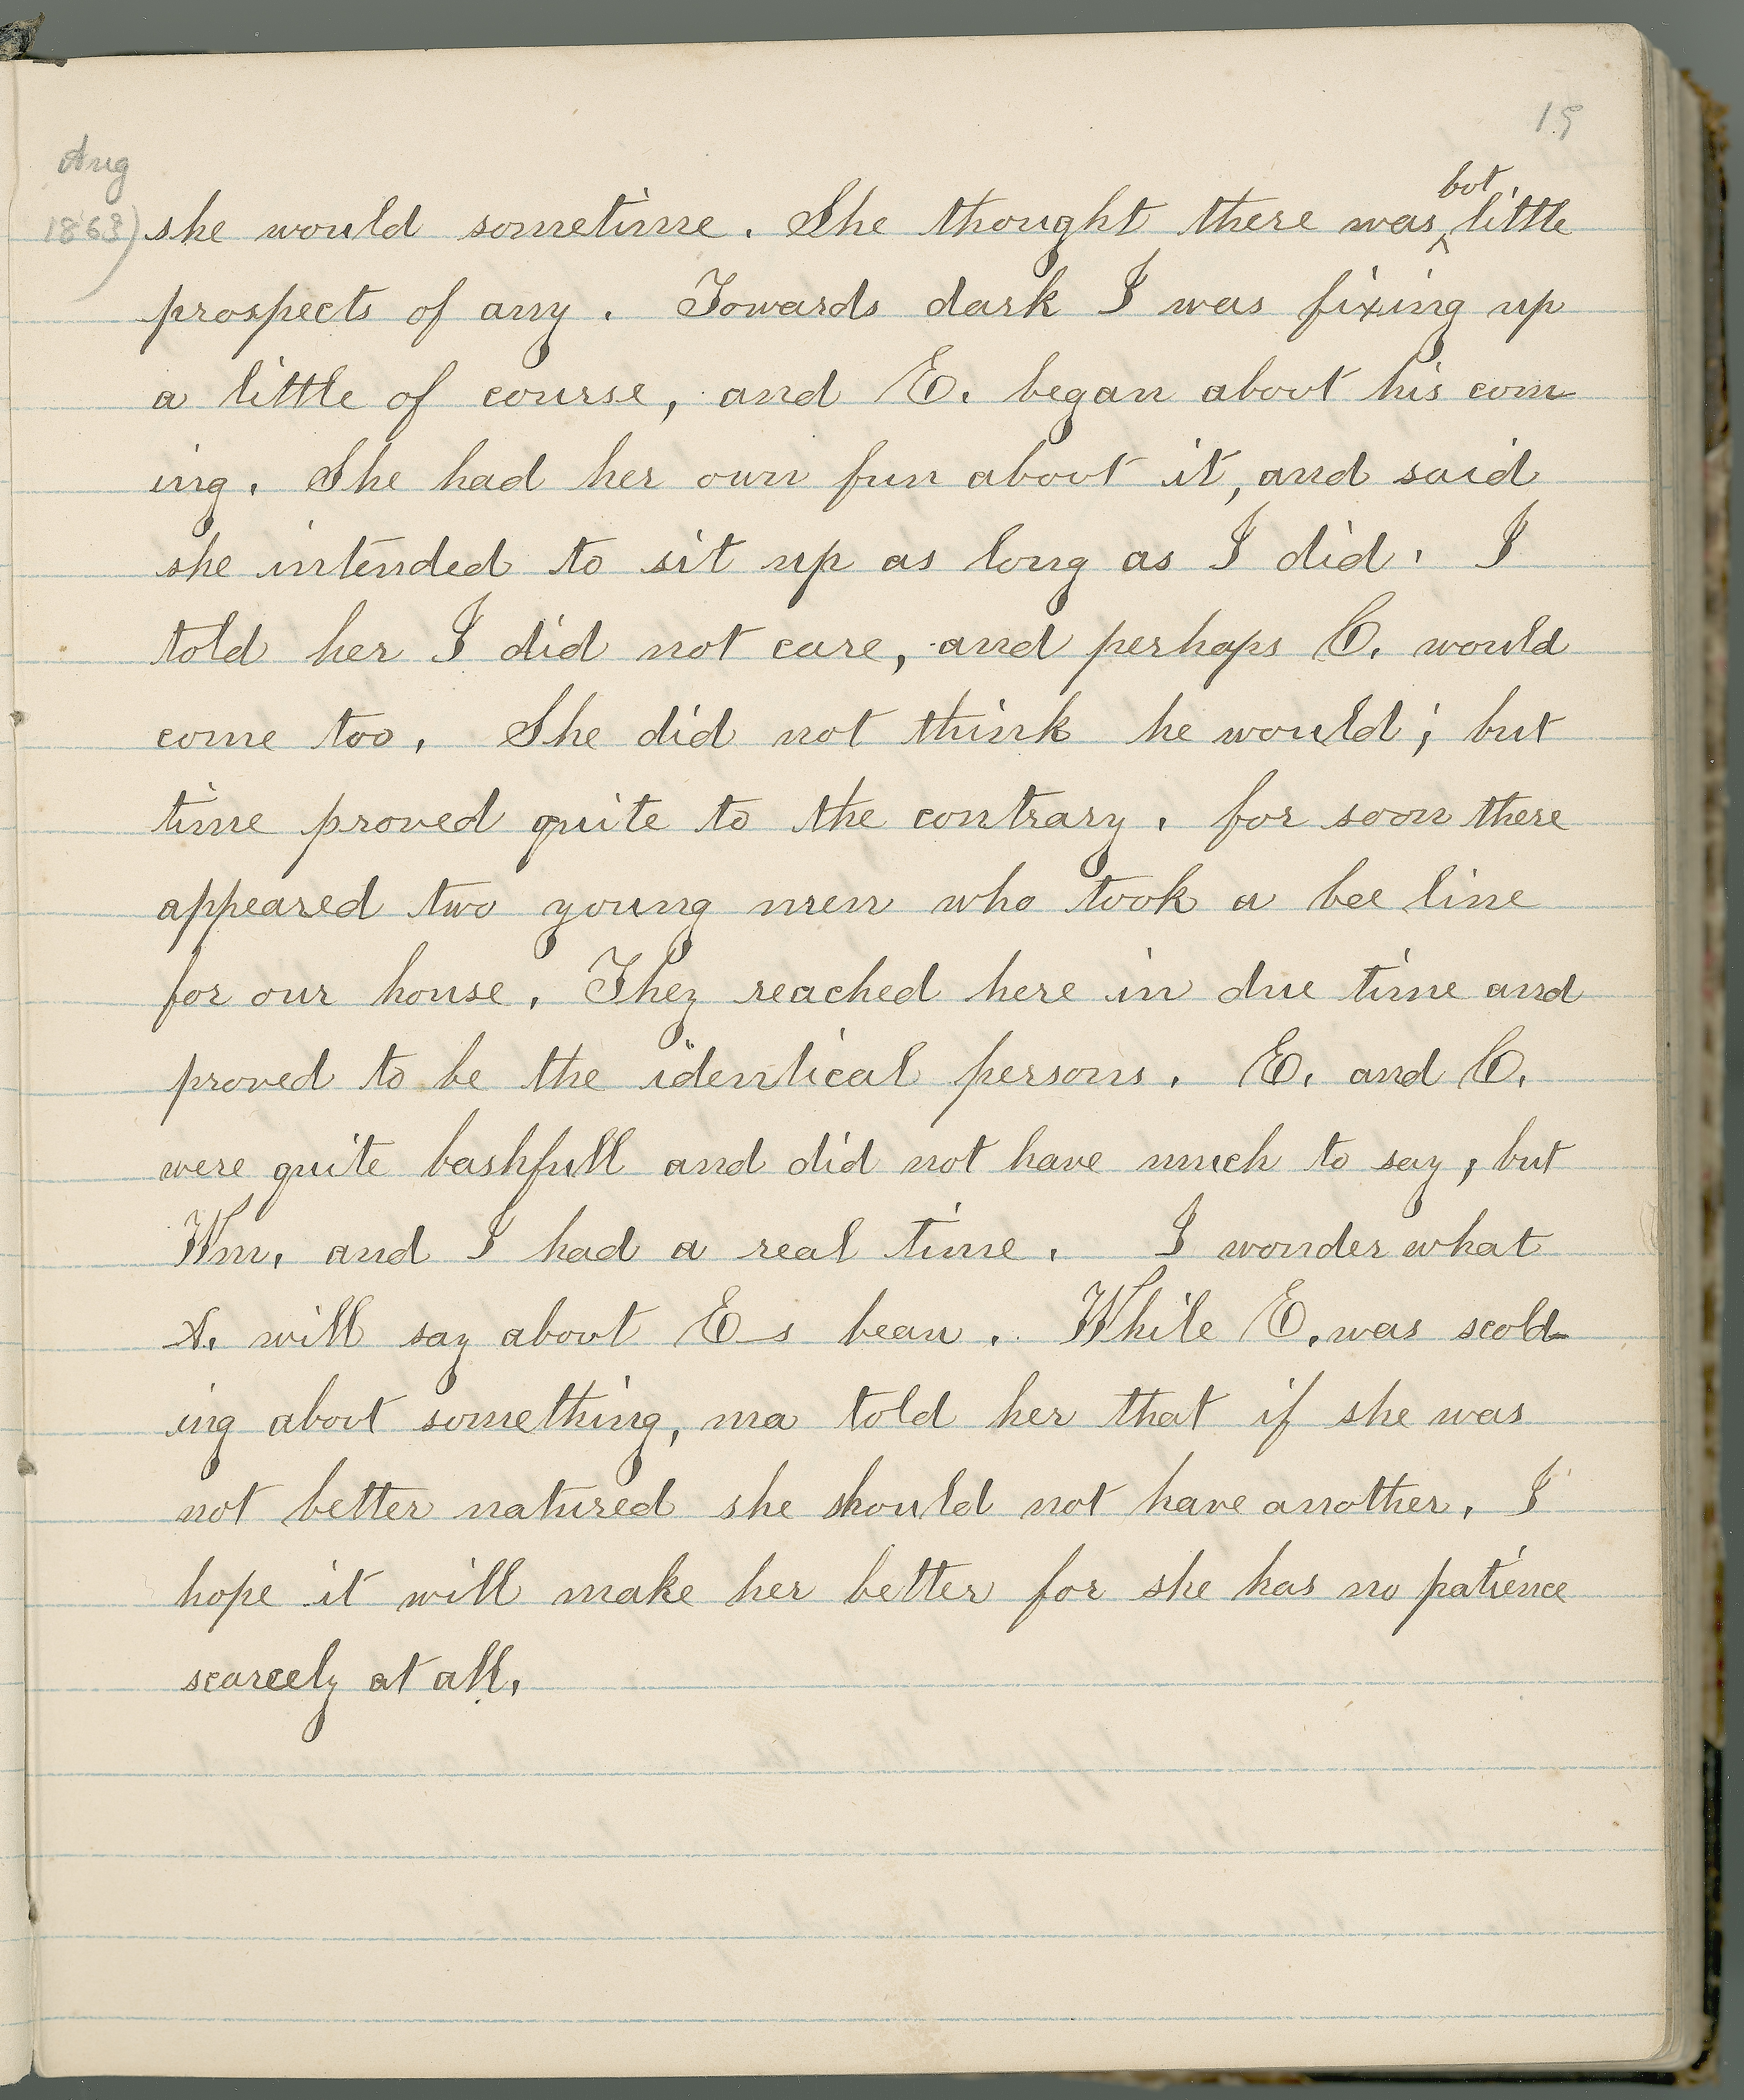 19
Aug
1863)
bot
she would sometime. She thought there was ‸ little
prospects of any. Towards dark I was fixing up
a little of course, and E. began about his com
ing. She had her own fun about it, and said
she intended to sit up as long as I did. I
told her I did not care, and perhaps C. would
come too. She did not think he would; but
time proved quite to the contrary. for soon there
appeared two young men who took a bee line
for our house. They reached here in due time and
proved to be the identical persons. E. and C.
were quite bashfull and did not have much to say; but
Wm. and I had a real time. I wonder what
A. will say about E s beau. While E. was scold
ing about something, ma told her that if she was
not better natured she should not have another. I
hope it will make her better for she has no patience
scarcely at all.